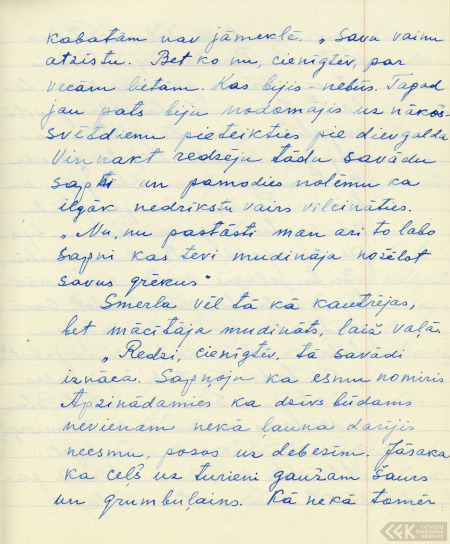 kabatām nav jāmeklē. „Savu vainu
atzīstu. Bet ko nu, cienīgtēv, par
vecām lietām. Kas bijis - nebūs. Tapad
jau pats biju nodomājis uz nākoš-
svētdienu pieteikties pie dievgalda
Viņnakt redzēju tādu savādu
sapni un pamodies nolēmu ka
ilgāk nedrīkstu vairs vilcināties.
„Nu, nu pastāsti man arī to labo
sapni kas tevi mudināja nožēlot
savus grēkus"
Smerla vēl tā kā kautrējas,
bet mācītāja mudināts, laiž vaļā.
„Redzi, cienīgtēv, tā savādi
iznāca. Sapņoju ka esmu nomiris
Apzinādamies ka dzīvs būdams
nevienam nekā ļauna darījis
neesmu, posos uz debesīm. Jāsaka
ka ceļš uz turieni gaužam šaurs
un grumbuļains. Kā nekā tomēr
LATVIEŠU
FOLKLORAS
KRĀTUVE